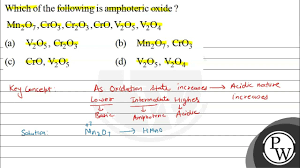 Which of the following is amphoteric oxide ?
Mn₂O₇, CrO₃, Cr₂O₃, CrO, V₂O₅, V₂O₄
(a) V₂O₅, Cr₂O₃ (b) Mn₂O₇, CrO₃
(c) CrO, V₂O₅ (d) V₂O₅, V₂O₄
Key Concept: As Oxidation State increases → Acidic nature increases
Lower Intermediate Higher
↓ ↓ ↓
Basic Amphoteric Acidic
Solution: +7
Mn₂O₇ → HMnO₄
P
W